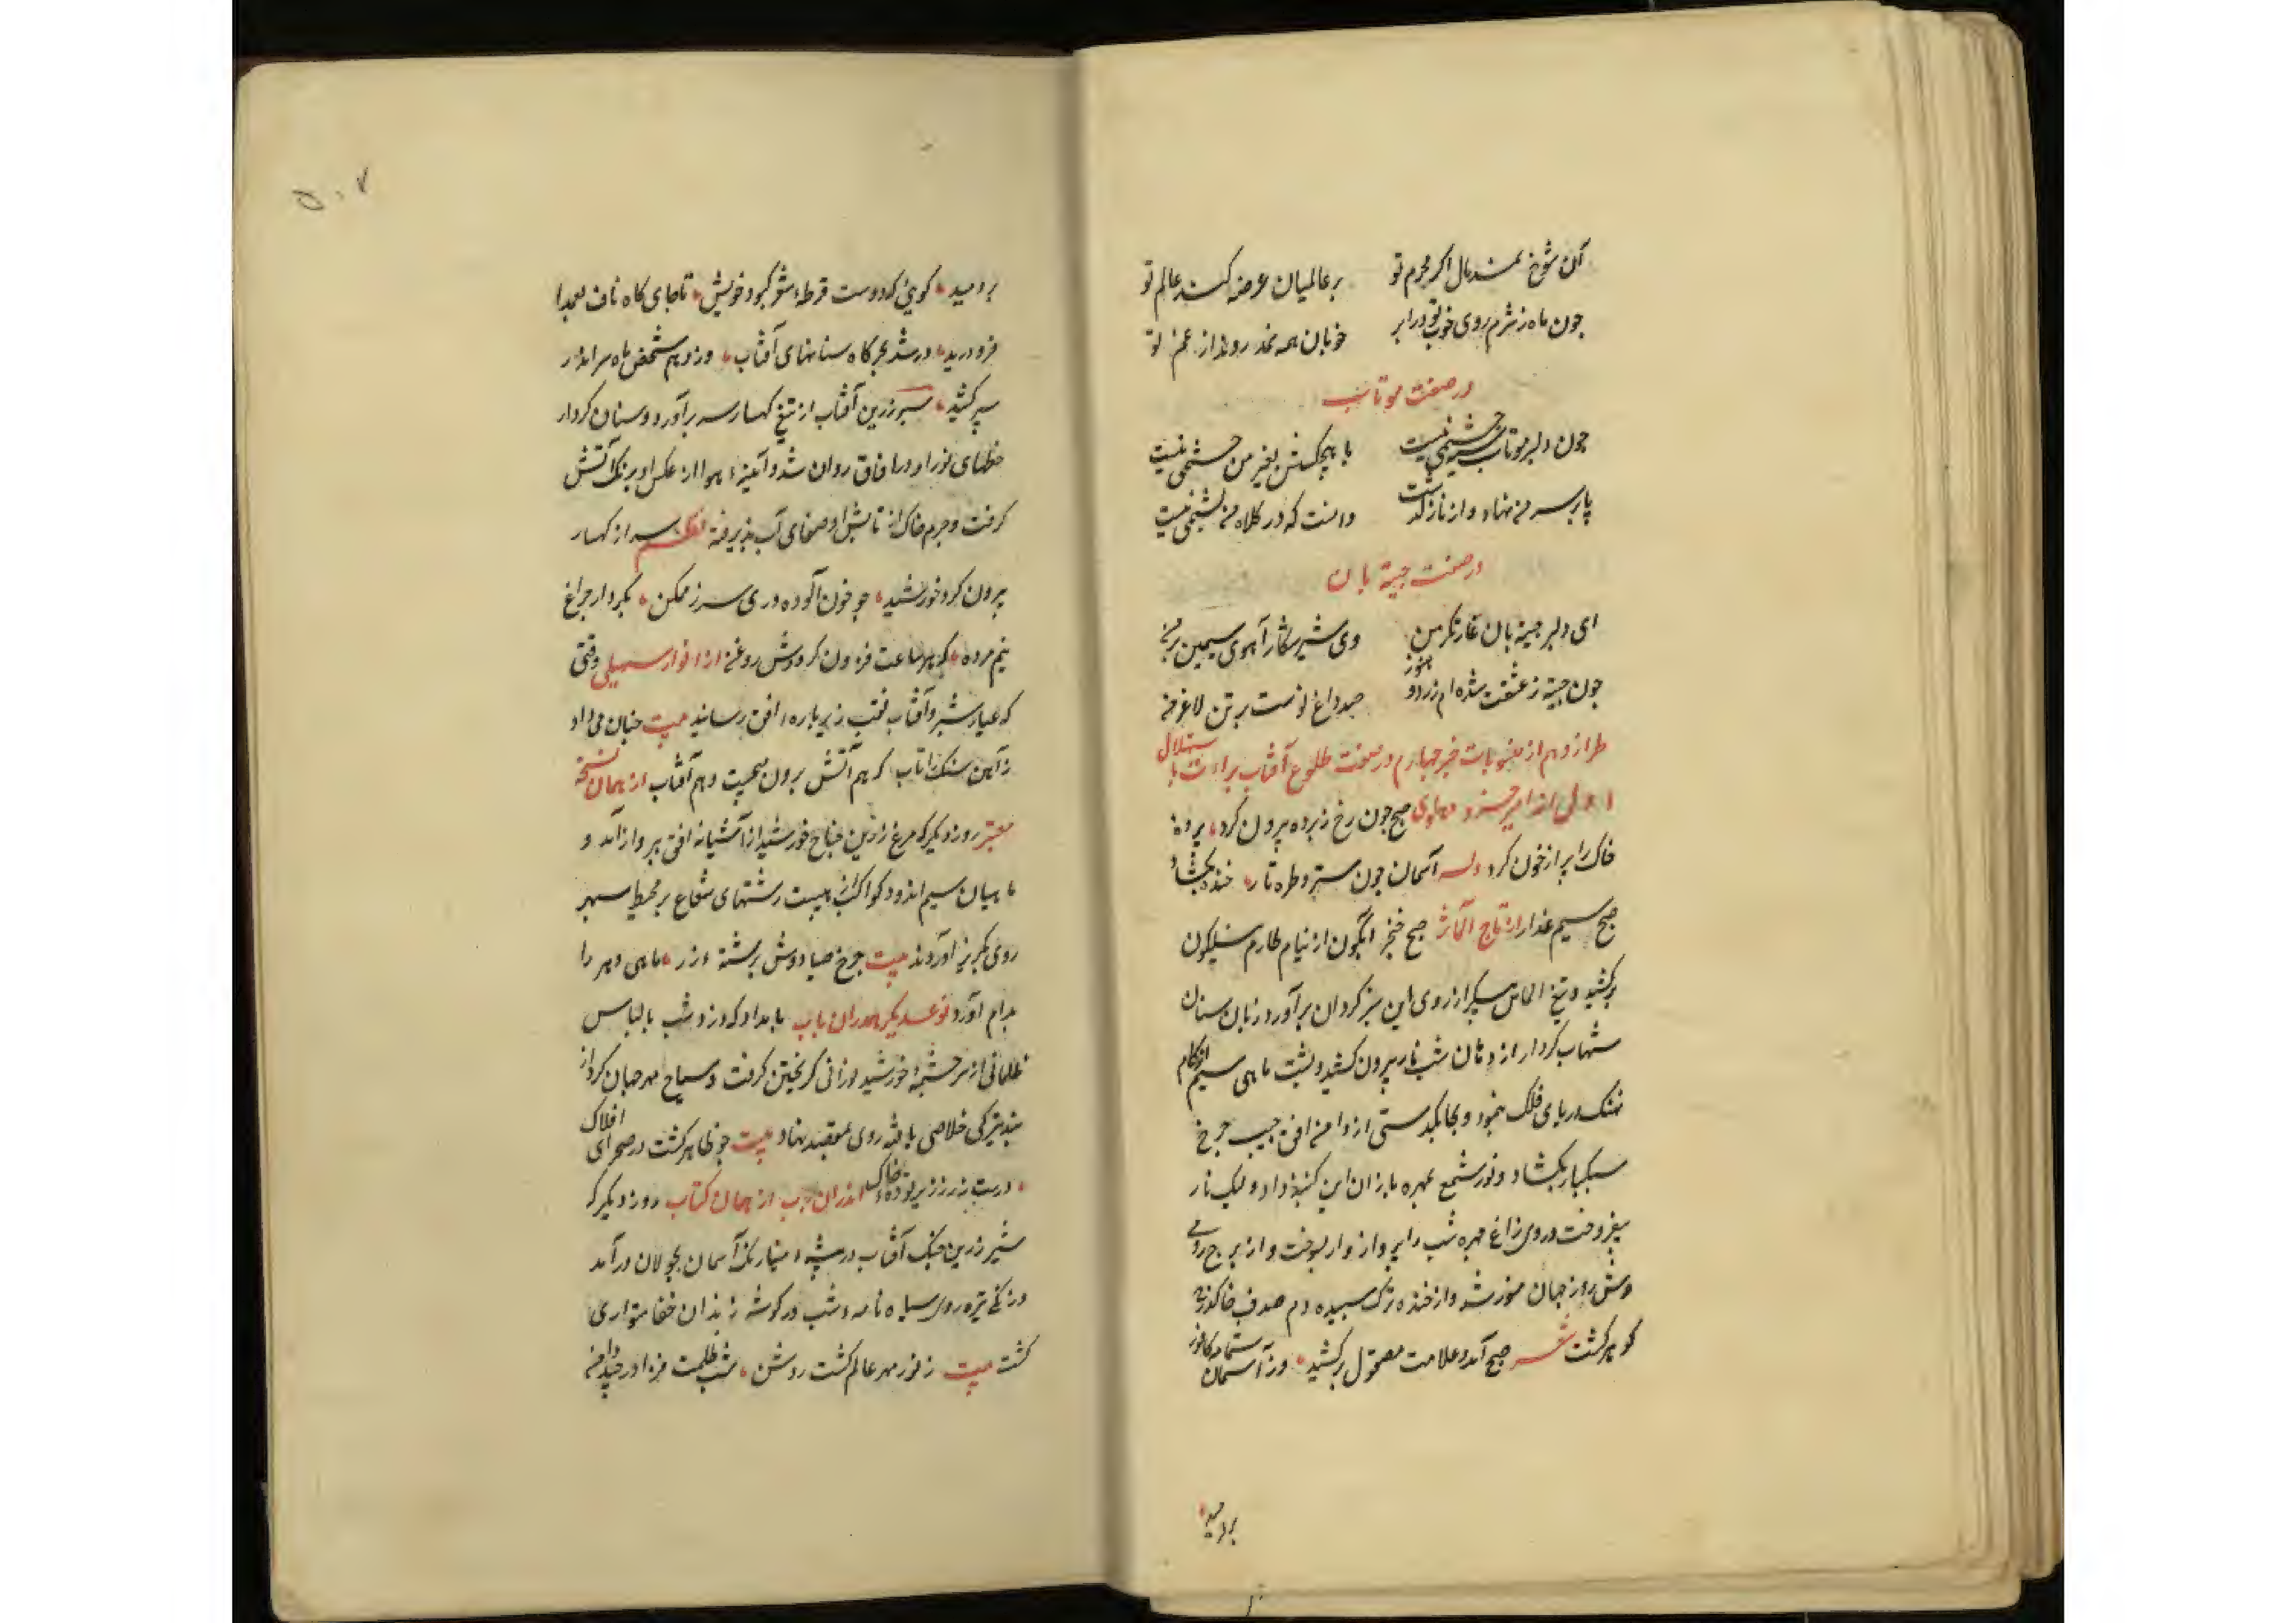 آن شوخ نمد مال اگر محرم تو بر عالمیان عرضه کند عالم تو
چون ماه ز شرم روی خوب تو در ابر خوبان همه نمد روند از غم تو
در صفت موتاب
چون دلبر موتاب چشمی نیست با هیچکسش بغیر من خشمی نیست
پا بر سر من نهاد و از ناز گذشت دانست که در کلاه من پشمی نیست
در صفت جیته بان
ای دلبر جیته بان غارتگر من وی شیر شکار آهوی سیمین بر من
چون جیته ز عشقت شده ام زرد و هنوز صد داغ تو است بر تن لاغر من
طراز دهم از منسوبات خبر چهارم در صفت طلوع آفتاب براءت با ستهلال
اول از امیر خسرو دهلوی صبح چون رخ ز پرده بیرون کرد پرده
خاک را پر از خون کرد وله آسمان چون ستر و طره تار خنده بگشاد
صبح سیم عذار از تاج المآثر صبح خنجر آبگون از نیام طارم نیلگون
برکشید و تیغ الماس پیکر از روی این سبز گردان برآورد زبان سنان
شهاب کردار از دهان شب تار بیرون کشید و پشت ماهی سیم اندام
نهنگ دریای فلک بنمود و بچابکدستی از دامن افق جیب چرخ
سبکبار بگشاد و نور شمع بمهره بازان این گنبذ داد و لیک نار
بیفروخت و روی زاغ چهره شب را پرواز وار بسوخت و از برج رومی
وش روز جهان منور شد و از خنده ترک سپیده دم صدف خاک پر
گوهر گشت شعر صبح آمد و علامت مصقول برکشید وز آسمان شمامه کافور
بردمید
۵۰۷
بردمید گویی که دوست قرطه شعر کبود خویش تا جای گاه ناف بعمدا
فرو درید در شد بچرگاه سنانهای آفتاب وز وهم شخص ماه سر اندر
سپر کشید سپر زرین آفتاب از تیغ کهسار سر برآورد و سنان کردار
خطهای نور او در آفاق روان شد و آئینه هوا از عکس او برنگ آتش
گرفت و جرم خاک از تابش او صفای آب پذیرفت نظم سر از کهسار
بیرون کرد خورشید چو خون آلوده دزدی سر ز مکمن بکردار چراغ
نیم مرده که هر ساعت فزون گردش روغن از انوار سهیلی وقتی
که عیار شبرو آفتاب نقب زیر باره افق رسانید بیت چنان می داد
ز آهن سنگ را تاب که هم آتش برون می جست و هم آب از همان نسخه
معتبر روز دیگر که مرغ زرین جناح خورشید از آشیانه افق بپرواز آمد و
ماهیان سیم اندود کواکب از هیبت رشتهای شعاع بر محیط سپهر
روی بگریز آوردند بیت چرخ صیاد وش برشته زر ماهی دهر را
بدام آورد نوع دیگر اندران باب بامداد که دزد شب با لباس
ظلمانی از سرچشمه خورشید نورانی گریختن گرفت و سیاح مهر جهان گرد از
بند تیرگی خلاصی یافته روی بمقصد نهاد بیت چو ظاهر گشت در صحرای افلاک
درست زر ز زیر توده خاک اندران باب از همان کتاب روز دیگر که
شیر زرین چنگ آفتاب در بیشه مینا رنگ آسمان بجولان درآمد
و زنگی تیره روی سیاه نامه شب در گوشه زندان خفا متواری
گشت بیت ز نور مهر عالم گشت روشن شب ظلمت فزا در چید دامن